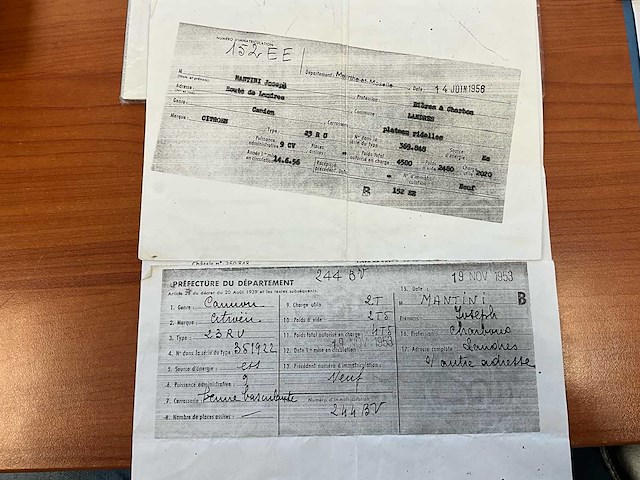 NUMÉRO D'IMMATRICULATION
152 EE
Département: Meurthe-et-Moselle Date: 14 JUIN 1956
MANTINI Joseph Profession: Bières & Charbon
Adresse: Route de Landres Commune LANDRES
Genre: Camion Carrosserie plateau ridelles
Marque: CITROEN Type: 23 R U N° dans la série du type 369.848 Source d'énergie: Es
Puissance administrative 9 CV Places assises: Poids total autorisé en charge 4500 Poids à vide 2480 Charge utile 2020
Année 1re mise en circulation: 14.6.56 Récépissé précédent N° d'immatriculation Neuf
B 152 EE
PRÉFECTURE DU DÉPARTEMENT
244 BV
19 NOV 1953
du décret du 20 Août 1939 et les textes subséquents.
15. Date:
1. Genre: Camion
2. Marque: Citroën
3. Type: 23 RU
4. N° dans la série du type 351922
5. Source d'énergie: ess
6. Puissance administrative: 9
7. Carrosserie: Benne basculante
8. Nombre de places assises: —
9. Charge utile 2T
10. Poids à vide 2T5
11. Poids total autorisé en charge 4T5
12. Date 1re mise en circulation 19 NOV 1953
13. Précédent numéro d'immatriculation:
Neuf
Numéro d'immatriculation
244 BV
M MANTINI B
Prénoms: Joseph
16. Profession: Charbons
17. Adresse complète Landres
s/ autre adresse